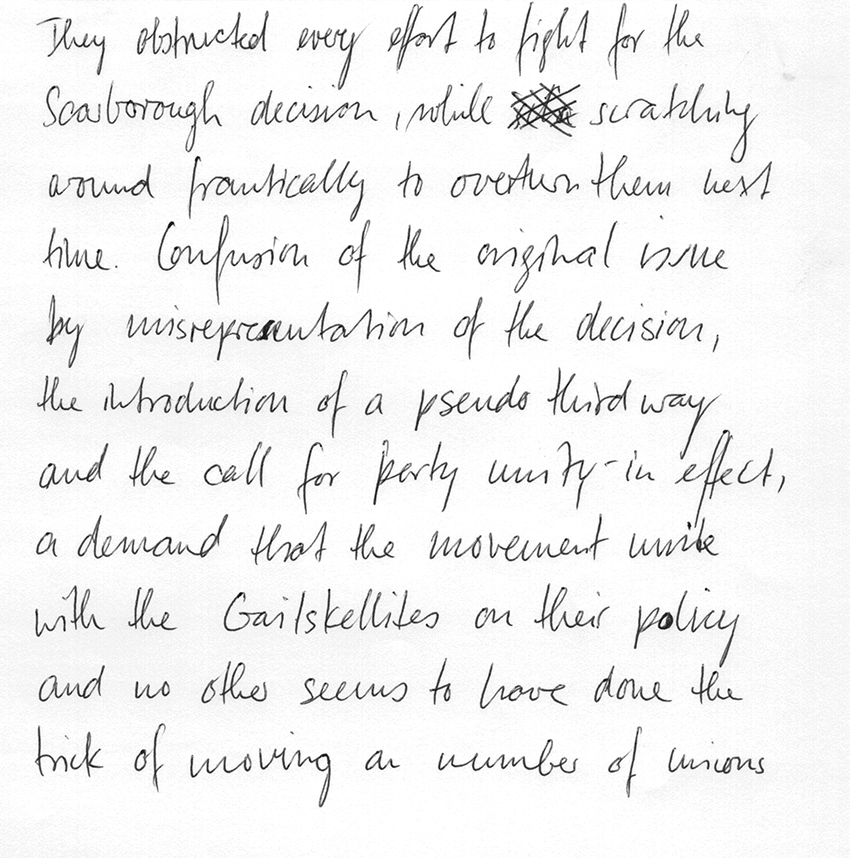 They obstructed every effort to fight for the
Scarborough decision, while scratching
around frantically to overturn them next
time. Confusion of the original issue
by misrepresentation of the decision,
the introduction of a pseudo third way
and the call for party unity-in effect,
a demand that the movement unite
with the Gaitskellites on their policy
and no other seems to have done the
trick of moving an number of unions